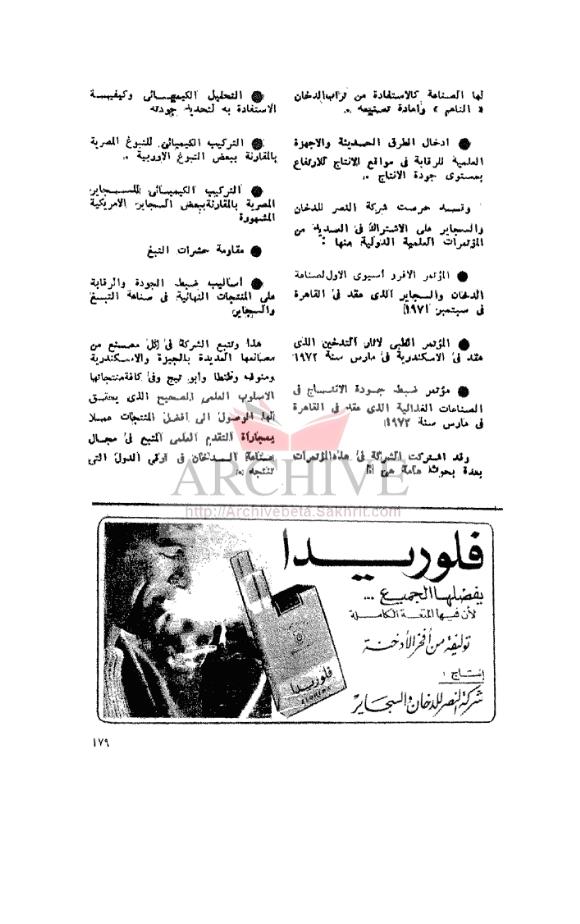 لها الصناعة كالاستفادة من تراب الدخان
« الناعم » واعادة تصنيعه ..
● ادخال الطرق الحديثة والاجهزة
العلمية للرقابة فى مواقع الانتاج للارتفاع
بمستوى جودة الانتاج ..
وتسد حرصت شركة النصر للدخان
والسجاير على الاشتراك فى العديد من
المؤتمرات العلمية الدولية منها :
● المؤتمر الافرو أسيوى الاول لصناعة
الدخان والسجاير الذى عقد فى القاهرة
فى سبتمبر ١٩٧١
● المؤتمر الطبى لاثار التدخين الذى
عقد فى الاسكندرية فى مارس سنة ١٩٧٢
● مؤتمر ضبط جودة الانتاج فى
الصناعات الغذائية الذى عقد فى القاهرة
فى مارس سنة ١٩٧٢
وقد اشتركت الشركة فى هذه المؤتمرات
بعدة بحوث هامة هى :
● التحليل الكيميائى وكيفية
الاستفادة به لتحديد جودته
● التركيب الكيميائى للتبوغ المصرية
بالمقارنة ببعض التبوغ الاوربية ..
● التركيب الكيميائى للسجاير
المصرية بالمقارنة ببعض السجاير الامريكية
المشهورة
● مقاومة حشرات التبغ
● أساليب ضبط الجودة والرقابة
على المنتجات النهائية فى صناعة التبغ
والسجاير
هذا وتتبع الشركة فى كل مصنع من
مصانعها العديدة بالجيزة والاسكندرية
ومنوف وطنطا وأبو تيج وفى كافة منتجاتها
الاسلوب العلمى الصحيح الذى يحقق
لها الوصول الى افضل المنتجات عملا
بمجاراة التقدم العلمى المتبع فى مجال
صناعة الدخان فى ارقى الدول التى
تنتجه ..
ARCHIVE
http://Archivebeta.Sakhrit.com
فلوريدا
يفضلها الجميع ...
لأن فيها المتعة الكاملة
توليفة من أفخر الأدخنة
إنتاج :
شركة النصر للدخان والسجاير
فلوريدا
FLORIDA
١٧٩